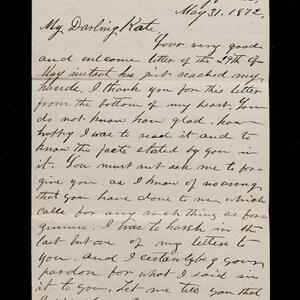 May 31. 1872.
My Darling Kate,
Your very good
and welcome letter of the 29th of
May instant has just reached my
hands. I thank you for this letter
from the bottom of my heart. You
do not know how glad, how
happy I was to read it and to
know the facts stated by you in
it. You must not ask me to for-
give you, as I know of no wrong,
that you have done to me, which
calls for any such thing as for-
giveness. I was too harsh in the
last but one of my letters to
you. And I certainly beg your
pardon for what I said in
it to you. Let me tell you that